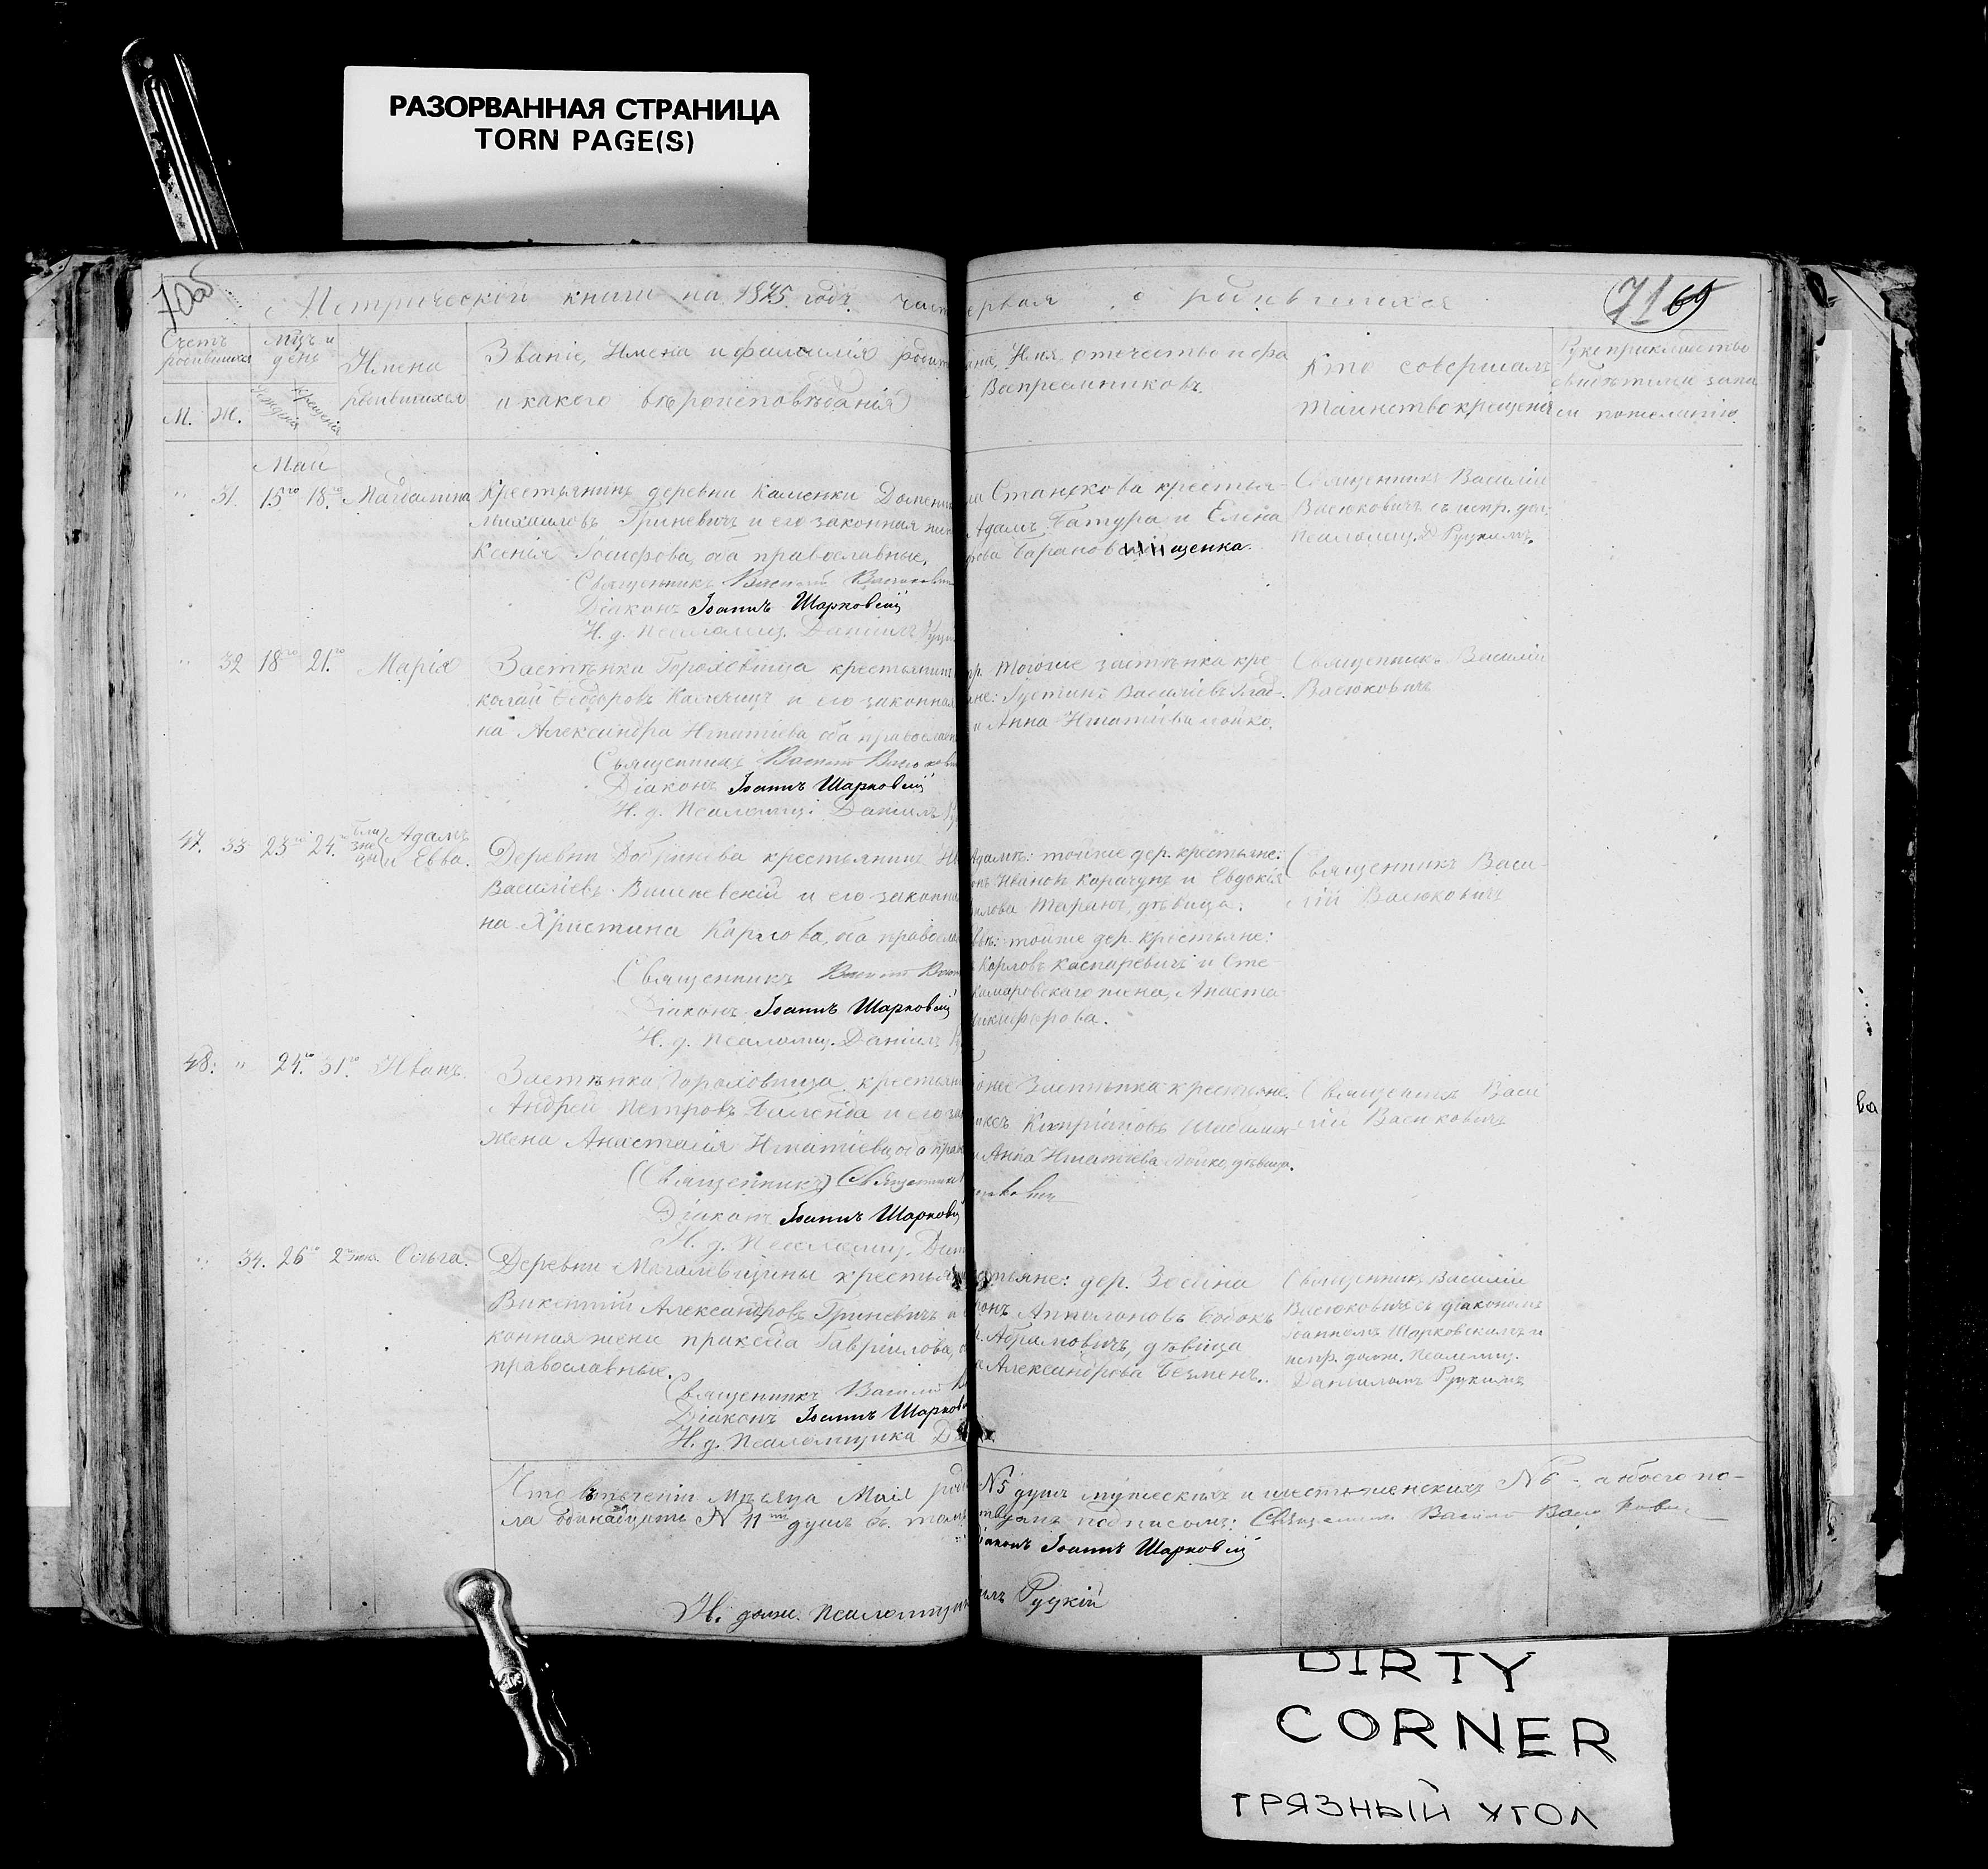 РАЗОРВАННАЯ СТРАНИЦА
TORN PAGE(S)
70об
Метрической книги на 1875 годъ. част
ервая о родившихся
71 69
Счетъ родившихся
М. Ж.
Мцъ и день
рожденія крещенія
Имена родившихся
Званіе, Имена и фамилія родит
и какого вѣроисповѣданія
Имя, отечество и фа
Воспреемниковъ.
Кто совершалъ
таинство крещенія
Рукоприкладство
свидѣтелей запи
си по желанію
Маи
" 31. 15го 18го Магдалина
Крестьянинъ деревни Каменки Домени
Михаиловъ Гриневичъ и его законная жен
Ксенія Іосифова, оба православные.
Священникъ Василій Васюкович
Діаконъ Іоаннъ Шарковскій
И. д. Псаломщ. Даніилъ Руцк
Станкова крестья-
Адамъ Батура и Елена
Священникъ Василій
Васюковичъ съ испр. дол.
Псаломщ. Д. Руцкимъ.
" 32 18го 21го Марія
Застѣнка Гороховища крестьянинъ
колай Ѳеодоровъ и его законная
на Александра Игнатіева оба православн
Священникъ Василій Васюкови
Діаконъ Іоаннъ Шарковскій
И. д. Псаломщ. Даніилъ
тогоже застѣнка кре-
не: Густинъ Василіевъ
и Анна Игнатіева Лойко.
Священникъ Василій
Васюковичъ
47. 33 23го 24го близнецы Адамъ
и Евва.
Деревни Добринева крестьянинъ
Василіевъ Вишневскій и его законна
на Христина Карлова, оба правосла
Священникъ Василій Васюк
Діаконъ Іоаннъ Шарковскій
И. д. Псаломщ. Даніилъ
Адамъ: тойже дер. крестьяне:
Ивановъ Карачунъ и Евдокія
лова Таранъ, дѣвица.
тойже дер. крестьяне:
Карловъ Каспаревичъ и Сте-
камаровскаго жена, Анаста-
икифорова.
Священникъ Васи-
лій Васюковичъ
48. " 24го 31го Иванъ.
Застѣнка Гороховища крестьян
Андрей Петровъ и его за
жена Анастасія Игнатіева, оба прав
(Священникъ) Священник
Діаконъ Іоаннъ Шарковск
И. д. Псаломщ. Дан
оже Застѣнка крестьяне:
Кипріановъ
Анна Игнатіева Лойко, дѣвица.
юковичъ
Священникъ Васи
лій Васюковичъ
" 34. 26го 2го іюн. Ольга.
Деревни Магалевщины крестья
Викентій Александровъ Гриневичъ и
конная жена Пракседа Гавріилова, о
православные.
Священникъ Василій В
Діаконъ Іоаннъ Шарковс
И. д. Псаломщика Д
стьяне: дер. Зосина
онъ Апполоновъ Бобокъ
Абрамовичъ, дѣвица
Александрова Безменъ.
Священникъ Василій
Васюковичъ съ діакономъ
Іоанномъ Шарковскимъ и
испр. долж. Псаломщ.
Даніиломъ Руцкимъ
Что въ теченіи Мѣсяца Маія роди
ла одинадцать № 11ть душъ въ том
№ 5 душъ мужескихъ и шесть женскихъ № 6 - а обоего по-
твуемъ подписомъ: Священникъ Василій Васюкович
іаконъ Іоаннъ Шарковскій
И. долж. Псаломщи
илъ Руцкій
ва
DIRTY
CORNER
ГРЯЗНЫЙ УГОЛ